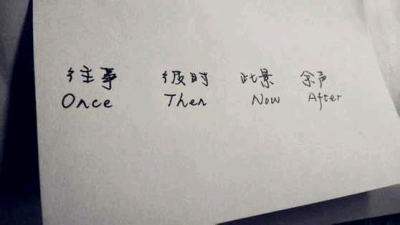 往事 彼时 此景 余声
Once Then Now After